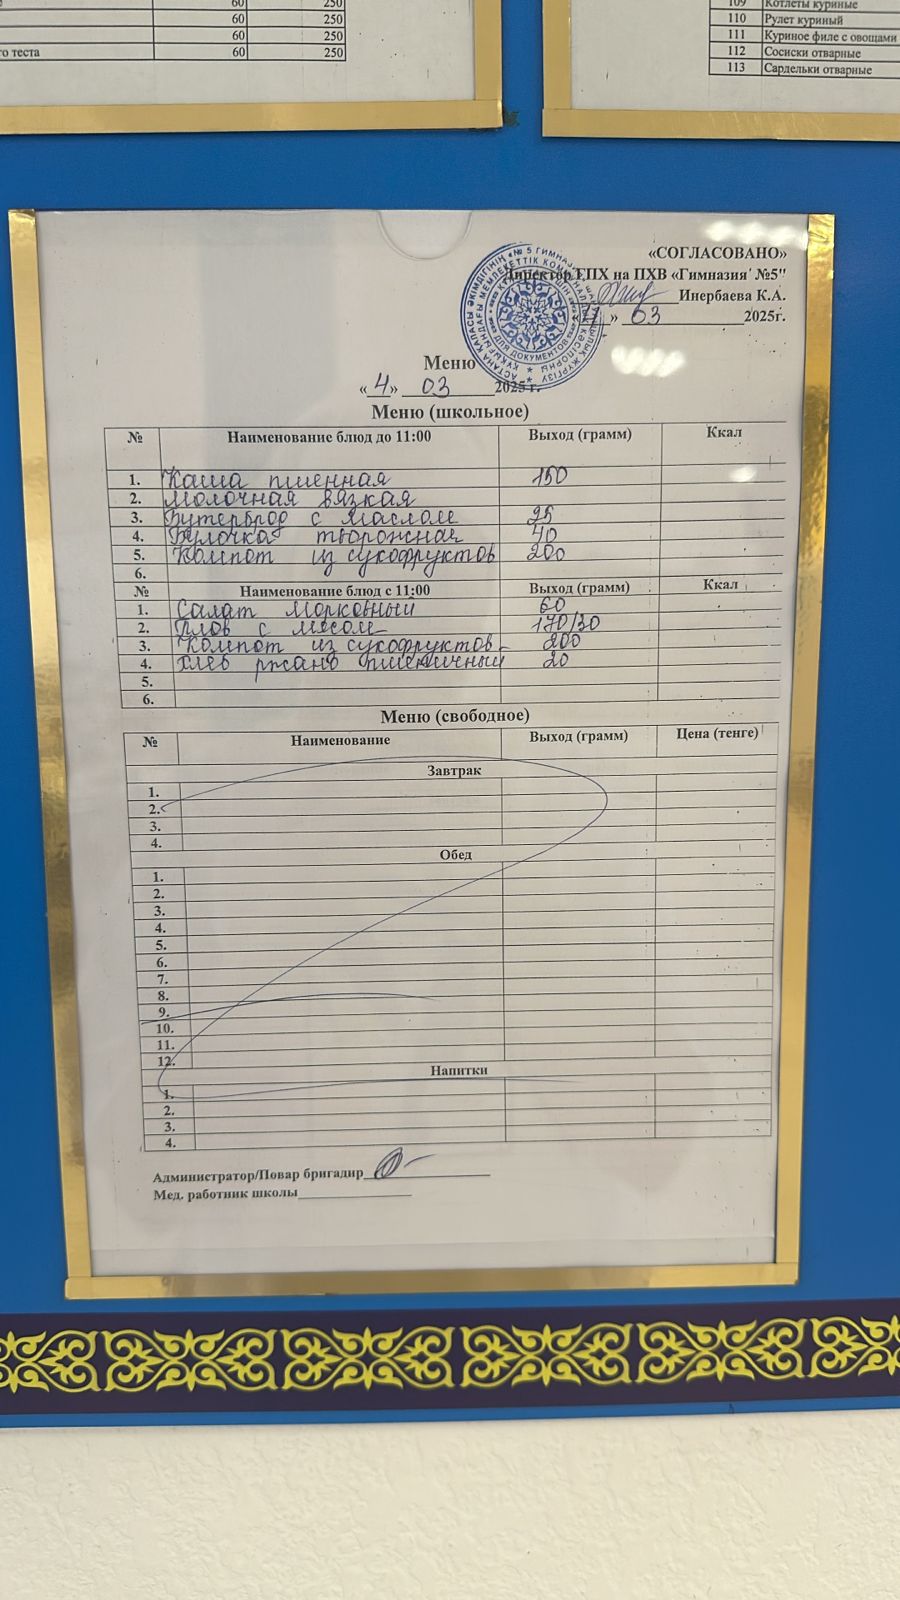 60 250
60 250
60 250
го теста 60 250
109 Котлеты куриные
110 Рулет куриный
111 Куриное филе с овощами
112 Сосиски отварные
113 Сардельки отварные
«СОГЛАСОВАНО»
Директор ГПХ на ПХВ «Гимназия №5"
Инербаева К.А.
«4» 03 2025г.
ДЛЯ ДОКУМЕНТОВ
Меню
«4» 03 2025 г.
Меню (школьное)
№ Наименование блюд до 11:00 Выход (грамм) Ккал
1. Каша пшенная 150
2. Молочная вязкая
3. Бутерброд с маслом 25
4. Булочка творожная 40
5. Компот из сухофруктов 200
6.
№ Наименование блюд с 11:00 Выход (грамм) Ккал
1. Салат морковный 60
2. Плов с мясом 170/30
3. Компот из сухофруктов 200
4. Хлеб ржано пшеничный 20
5.
6.
Меню (свободное)
№ Наименование Выход (грамм) Цена (тенге)
Завтрак
1.
2.
3.
4.
Обед
1.
2.
3.
4.
5.
6.
7.
8.
9.
10.
11.
12.
Напитки
1.
2.
3.
4.
Администратор/Повар бригадир
Мед. работник школы